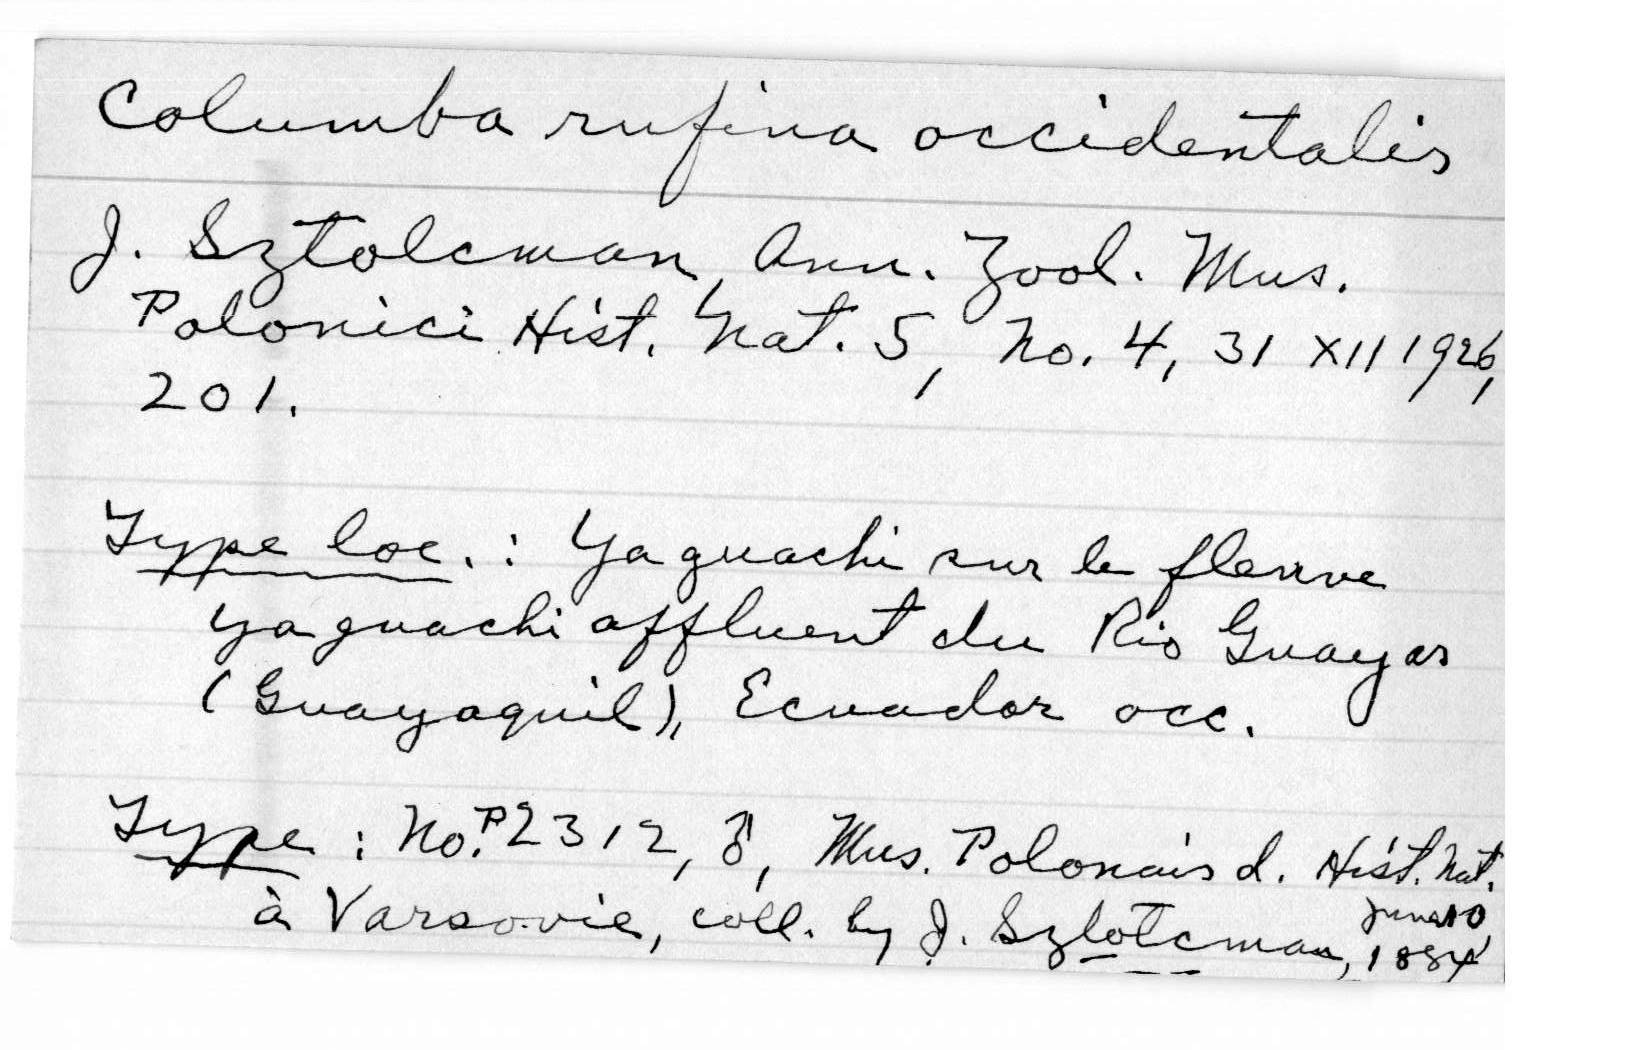 Columba rufina occidentalis
J. Sztolcman, Ann. Zool. Mus.
Polonici Hist. Nat. 5, No. 4, 31 XII 1926,
201.
Type loc. : Yaguachi sur le fleuve
Yaguachi affluent du Rio Guayas
(Guayaquil), Ecuador occ.
Type : No. P2312, ♂, Mus. Polonais d. Hist. Nat.
à Varsovie, coll. by J. Szlotcman, June 10, 1884